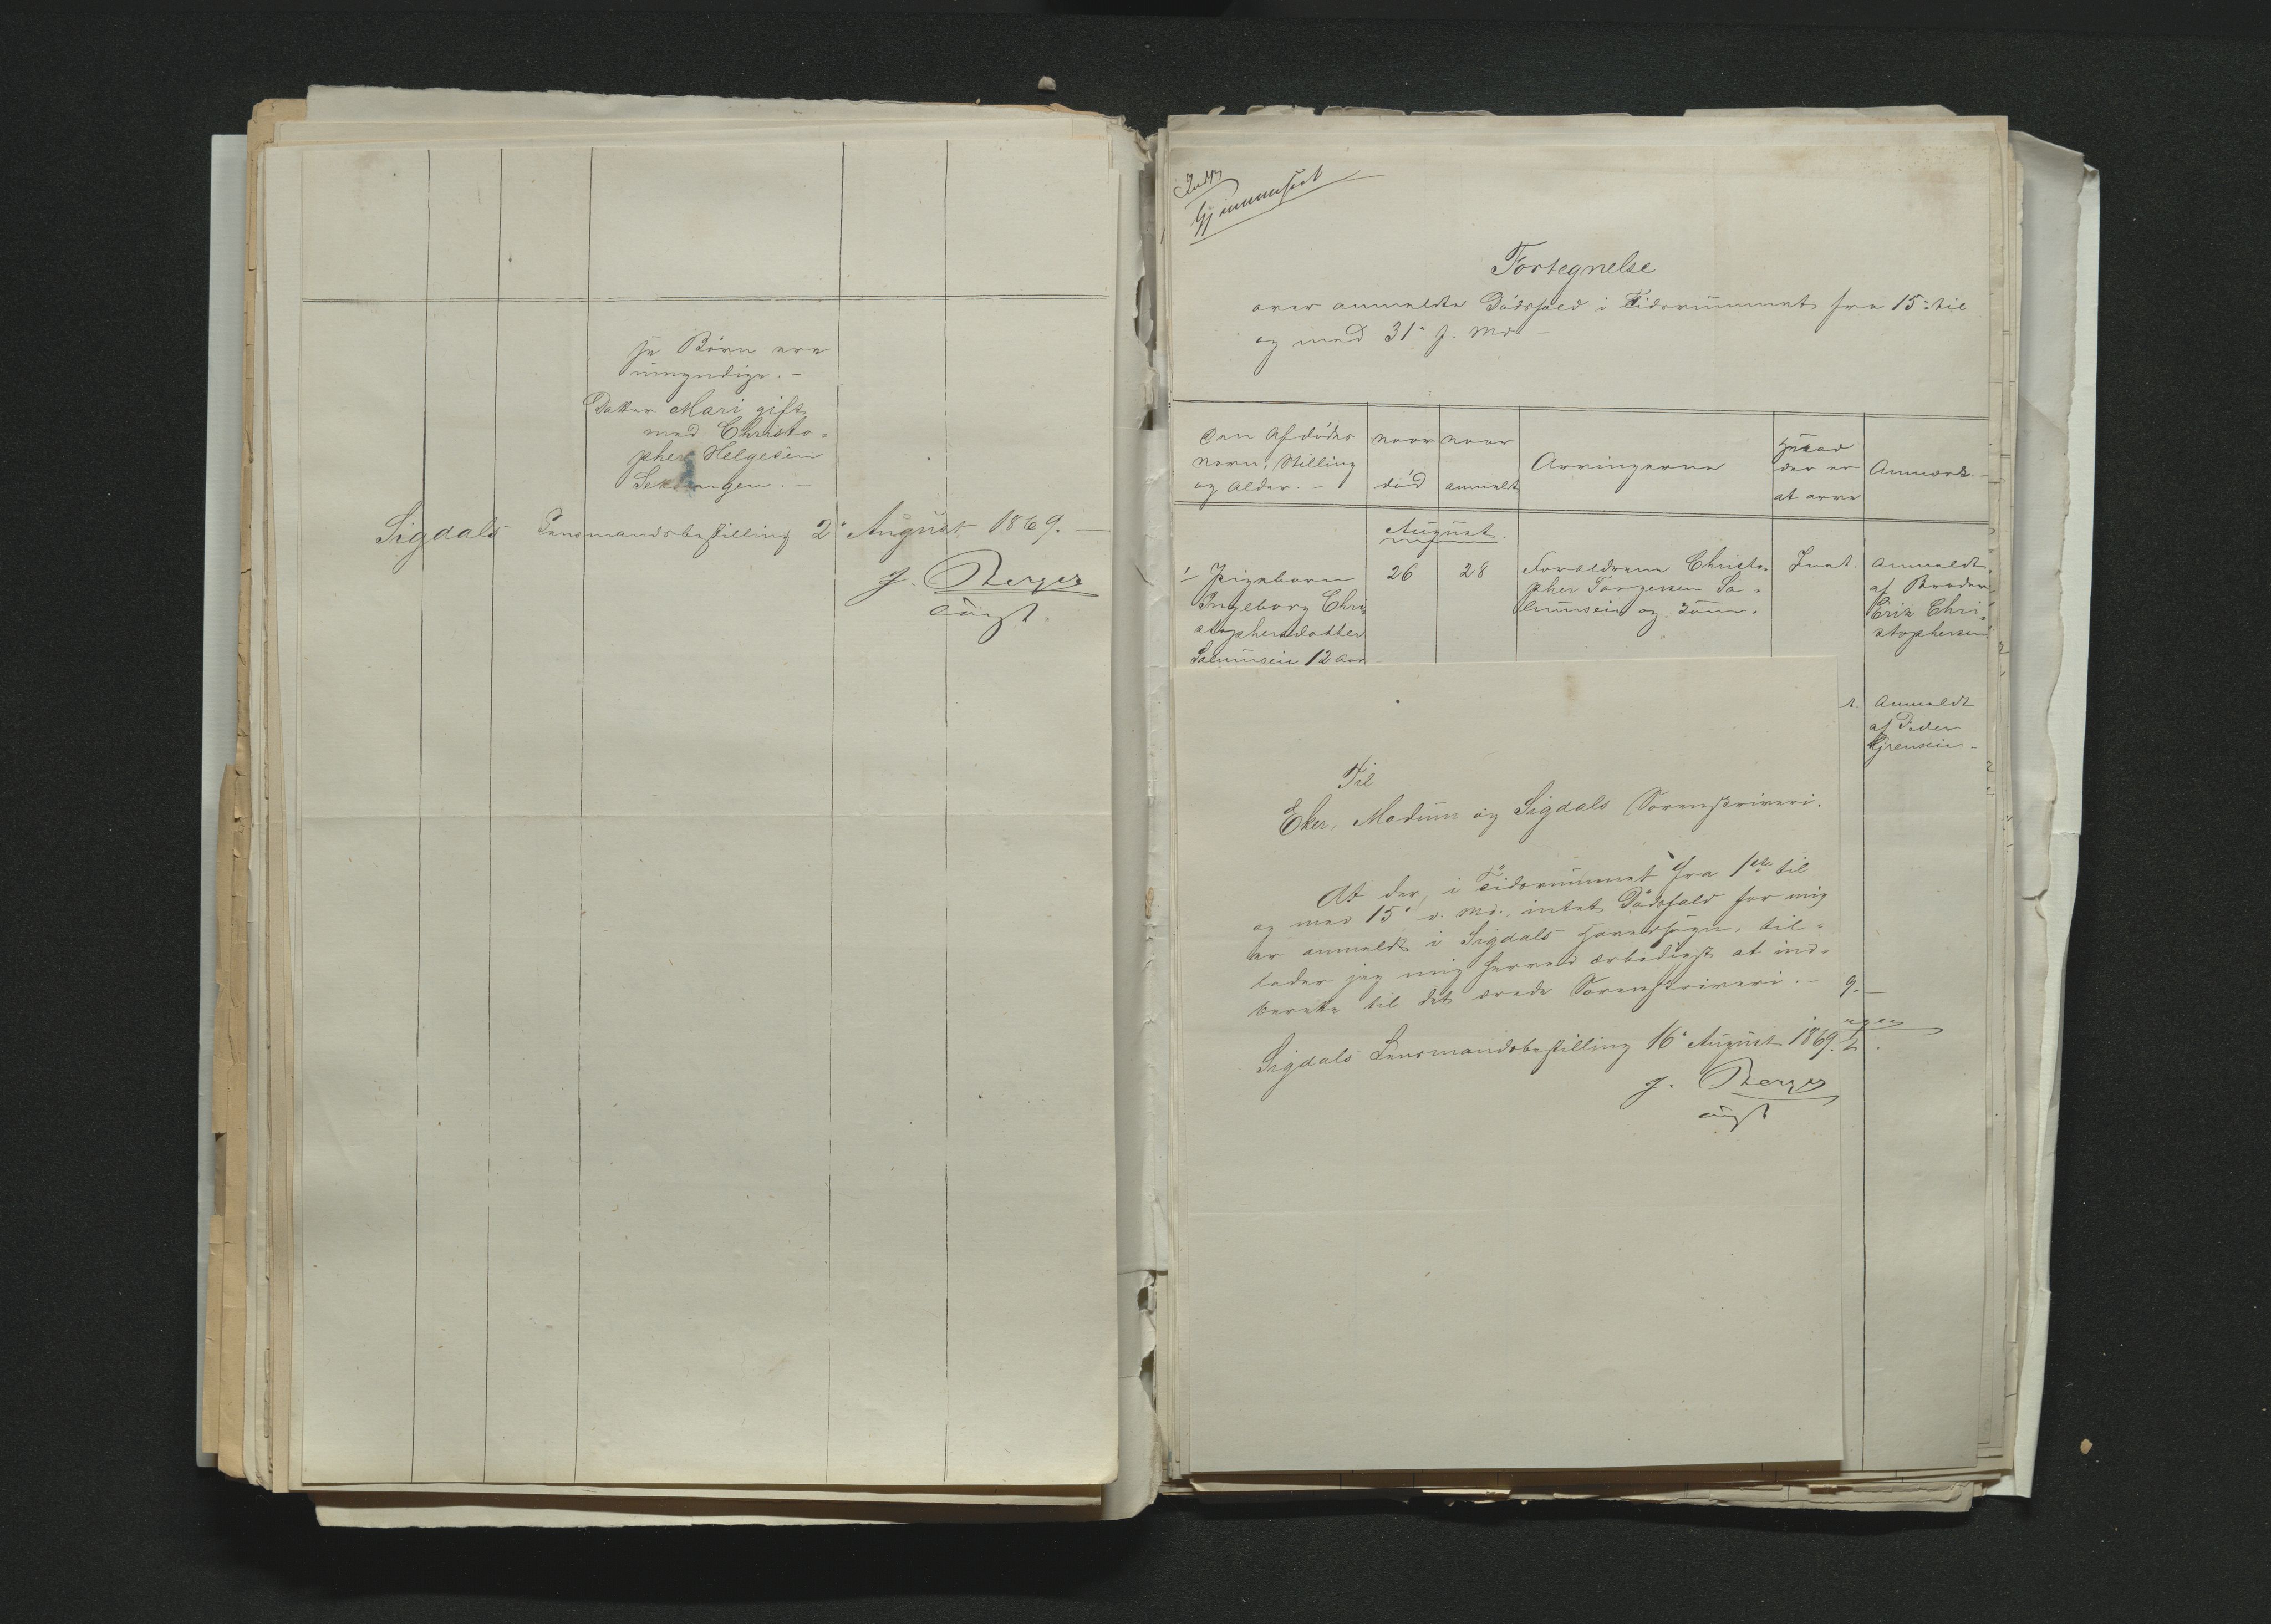 je Børn ere
umyndige. –
Datter Mari gift
med Christo-
pher Helgesen
Sigdals Lensmandsbestilling 2' August 1869. –
J. Berger
Cõnst.
Gjennemseet
Fortegnelse
over anmeldte Dødsfald i Tidsrummet fra 15' til
og med 31' f. Md.
Den Afdødes
Navn, Stilling
og Alder. –
naar
død
naar
anmeldt
Arvingerne
Hvad
der er
at arve
Anmærk. –
August.
1 Pigebarn
Ingeborg Chri-
stophersdatter
12 Aar
26
28
Forældrene Christo-
pher Torgersen
Intet.
Anmeldt
af Broderen
Erik Chri-
stophersen
t.
Anmeldt
af Peder
Til
Eker, Modum og Sigdals Sorenskriveri.
At der, i Tidsrummet fra 1ste til
og med 15' d. Md., intet Dødsfald for mig
er anmeldt i Sigdals Hovedsogn, til-
lader jeg mig herved ærbødigst at ind-
berette til det ærede Sorenskriveri. –
9. –
Sigdals Lensmandsbestilling 16' August 1869.
J. Berger
cõnst